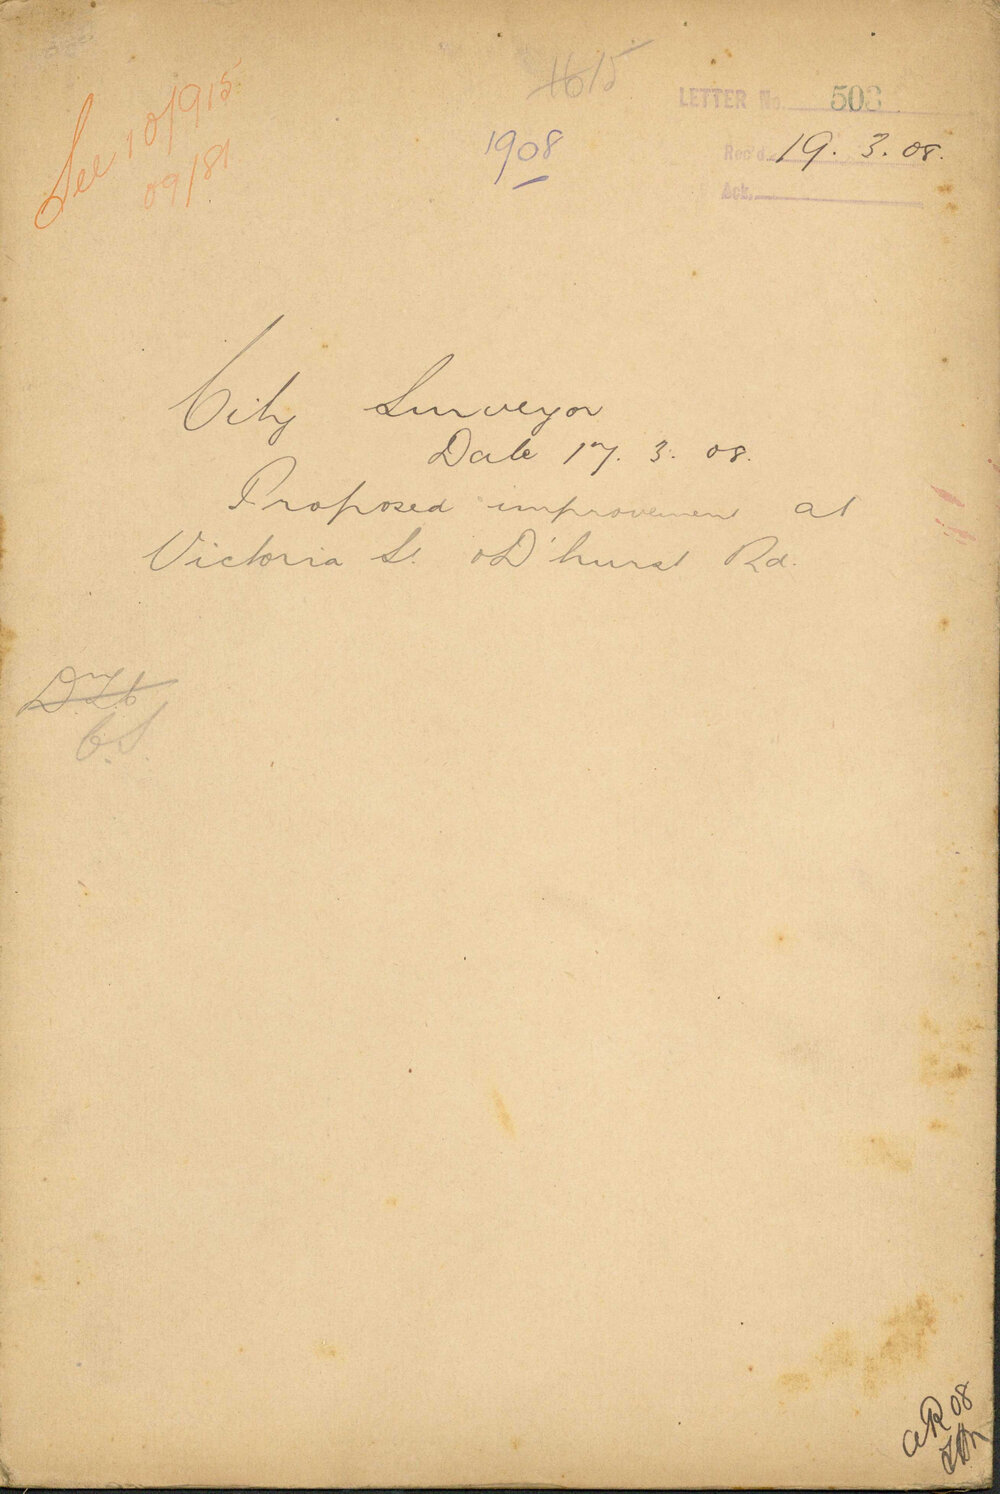 See 10/915
09/81
1615
1908
LETTER No. 503
Rec'd. 19. 3. 08.
Ack.
City Surveyor
Date 17. 3. 08.
Proposed improvement at
Victoria St. & D'hurst Rd.
C.S.
08